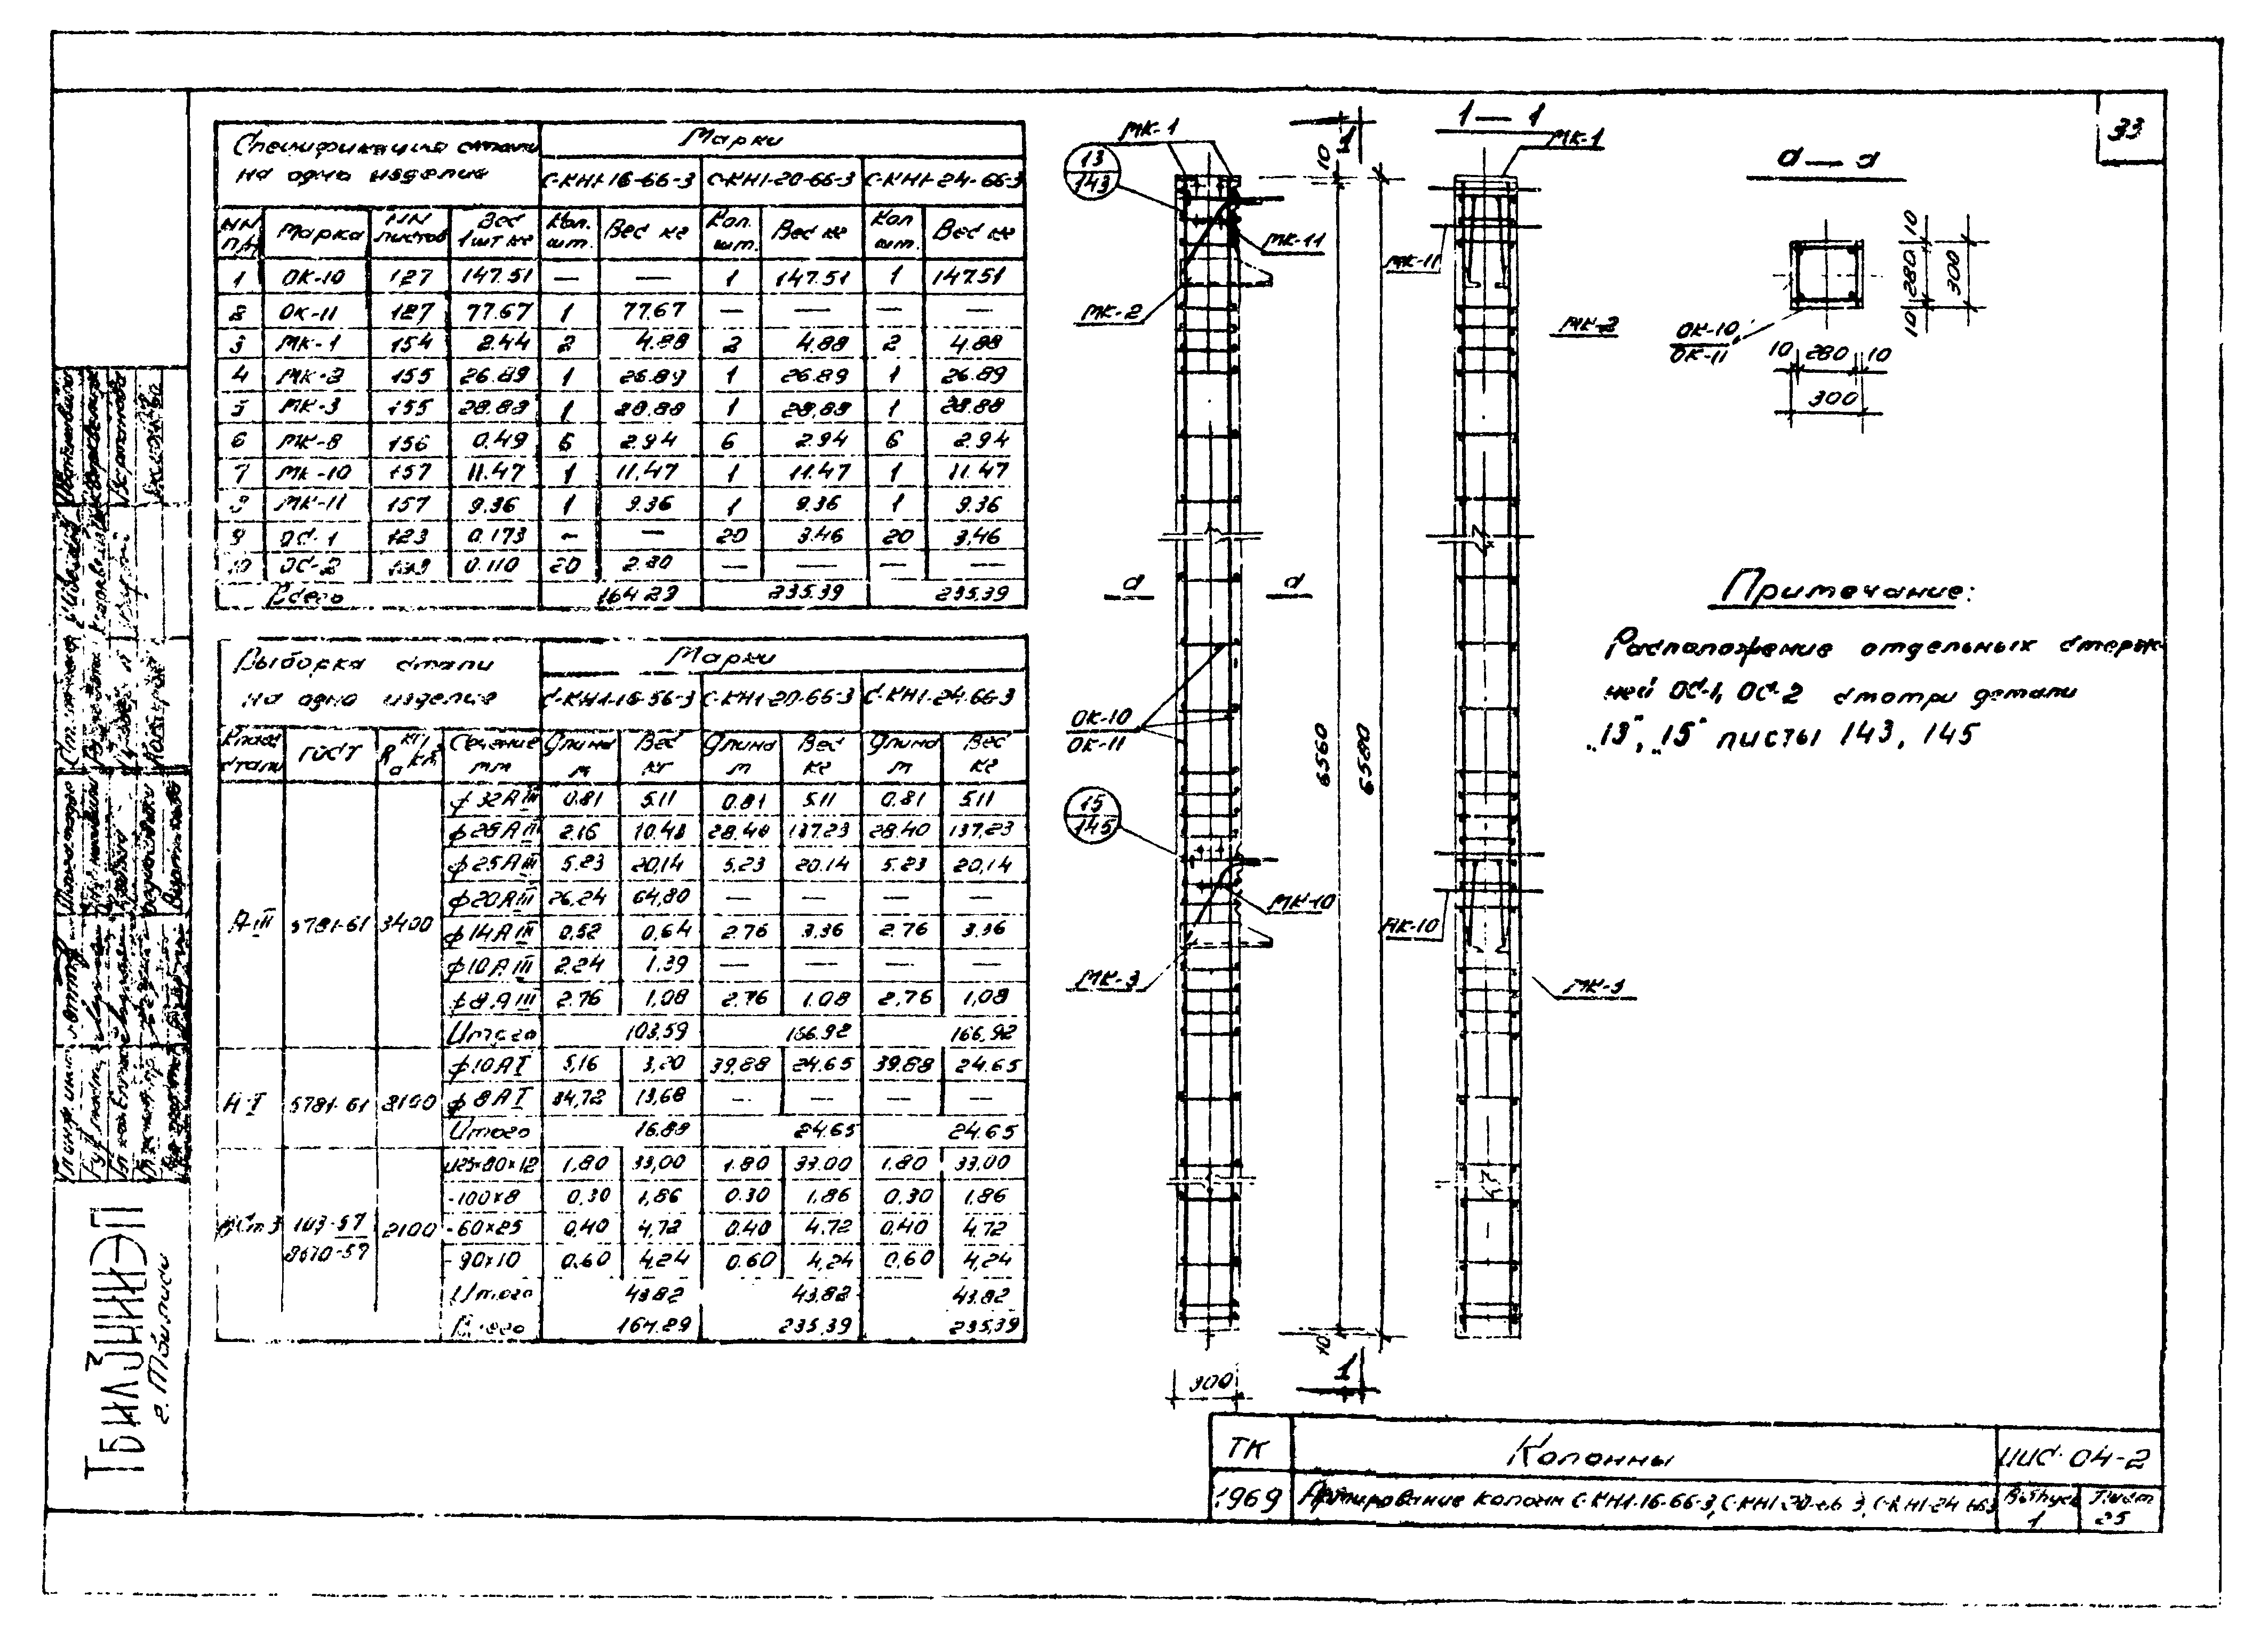 33
Спецификация стали
на одно изделие
Марки
С-КН1-16-66-3 С-КН1-20-66-3 С-КН1-24-66-3
NN п/п Марка NN листов Вес 1шт кг Кол. шт. Вес кг Кол. шт. Вес кг Кол шт. Вес кг
1 ОК-10 127 147.51 — — 1 147.51 1 147.51
2 ОК-11 127 77.67 1 77.67 — — — —
3 МК-1 154 2.44 2 4.88 2 4.88 2 4.88
4 МК-2 155 26.89 1 26.89 1 26.89 1 26.89
5 МК-3 155 28.88 1 28.88 1 28.88 1 28.88
6 МК-8 156 0.49 6 2.94 6 2.94 6 2.94
7 МК-10 157 11.47 1 11.47 1 11.47 1 11.47
8 МК-11 157 9.36 1 9.36 1 9.36 1 9.36
9 ОС-1 123 0.173 — — 20 3.46 20 3.46
10 ОС-2 123 0.110 20 2.20 — — — —
Всего 164.29 235.39 235.39
Выборка стали
на одно изделие
Марки
С-КН1-16-66-3 С-КН1-20-66-3 С-КН1-24-66-3
Класс стали ГОСТ Rа кг/см² Сечение мм Длина м Вес кг Длина м Вес кг Длина м Вес кг
А III 5781-61 3400
ф32АIII 0.81 5.11 0.81 5.11 0.81 5.11
ф28АIII 2.16 10.43 28.40 137.23 28.40 137.23
ф25АIII 5.23 20,14 5,23 20.14 5.23 20,14
ф20АIII 26.24 64,80 — — — —
ф14АIII 0,52 0,64 2.76 3.36 2.76 3.36
ф10АIII 2.24 1.39 — — — —
ф8АIII 2.76 1,08 2.76 1,08 2,76 1,08
Итого 103,59 166.92 166,92
А-I 5781-61 2100
ф10АI 5,16 3,20 39,88 24.65 39.88 24.65
ф8АI 34,72 13,68 — — — —
Итого 16.88 24.65 24.65
ВСт3 103-57 8510-57 2100
125×80×12 1,80 33,00 1.80 33.00 1.80 33.00
-100×8 0,30 1,86 0.30 1,86 0,30 1.86
-60×25 0,40 4,72 0.40 4.72 0,40 4.72
-90×10 0,60 4,24 0.60 4,24 0,60 4,24
Итого 43.82 43.82 43.82
Всего 164.29 235,39 235,39
МК-1
13
143
МК-11
МК-2
а а
ОК-10
ОК-11
15
145
МК-10
МК-3
300
1
10
6560
6580
10
1
1—1
МК-1
МК-11
МК-2
МК-10
МК-3
а—а
10
280
10
300
ОК-10
ОК-11
10 280 10
300
Примечание:
Расположение отдельных стерж-
ней ОС-1, ОС-2 смотри детали
„13", „15" листы 143, 145
ТбилЗНИИЭП
г. Тбилиси
ТК
Колонны
ИИС-04-2
1969
Армирование колонн С-КН1-16-66-3, С-КН1-20-66-3, С-КН1-24-66-3
Выпуск
1
Лист
25